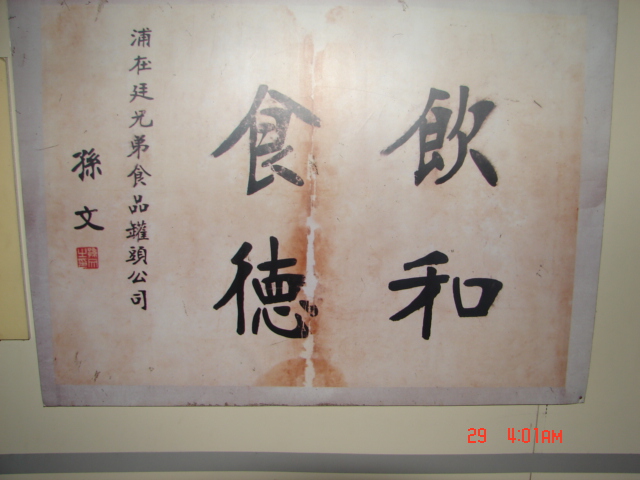 飲和
食德
浦在廷兄弟食品罐頭公司
孫文
29 4:01AM